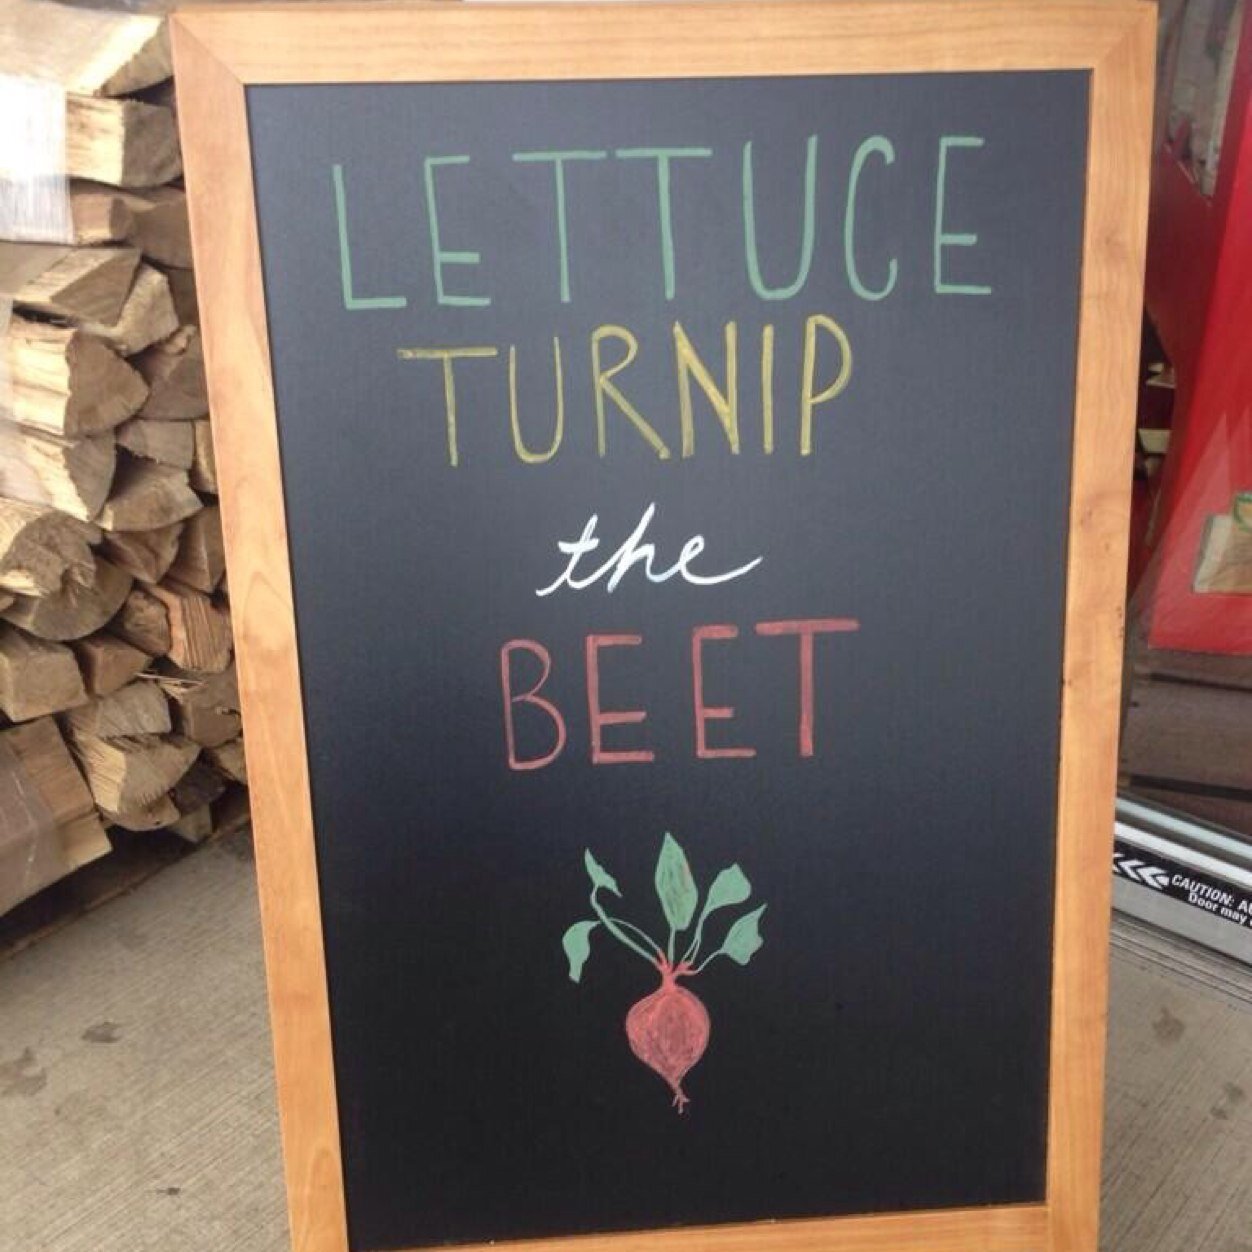 LETTUCE
TURNIP
the
BEET
CAUTION:
Door may